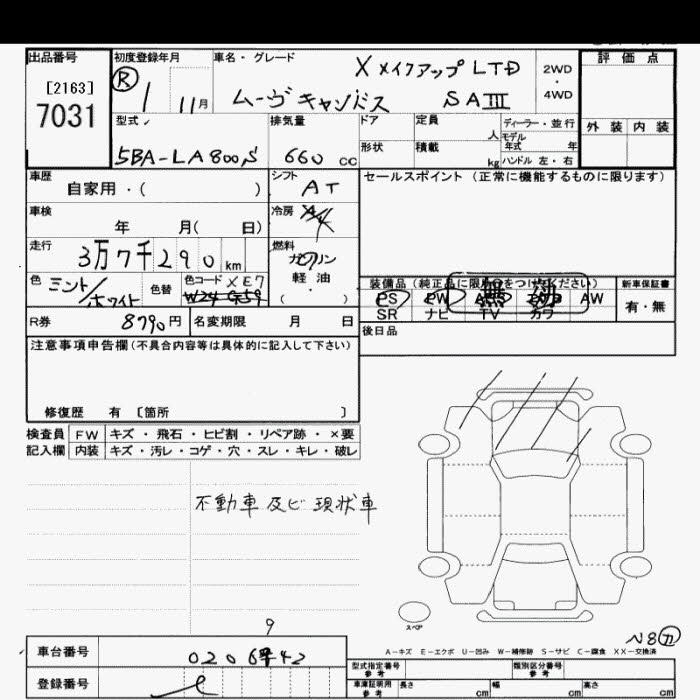 出品番号
[2163]
7031
初度登録年月
Ⓡ 1 11月
車名・グレード
X メイクアップ LTD
ムーヴ キャンバス SAIII
2WD
・
4WD
評価点
外装 内装
型式
5BA-LA800S
排気量
660 cc
ドア
形状
定員 人
積載 kg
ディーラー・並行
モデル年式 年
ハンドル 左・右
車歴
自家用・( )
シフト
AT
セールスポイント (正常に機能するものに限ります)
車検
年 月( 日)
冷房
走行
3万7千290 km
燃料
ガソリン
軽油
( )
色
ミント/ホワイト
色替
色コード XE7
W24 G59
装備品 (純正品に限り○をつけください)
無効
PS PW AW
SR ナビ TV カワ
新車保証書
有・無
R券 8790円
名変期限 月 日
後日品
注意事項申告欄(不具合内容等は具体的に記入して下さい)
修復歴 有 〔箇所 〕
検査員記入欄
FW キズ・飛石・ヒビ割・リペア跡・×要
内装 キズ・汚レ・コゲ・穴・スレ・キレ・破レ
不動車 及ビ 現状車
スペア
N8㋕
A-キズ E-エクボ U-凹み W-補修跡 S-サビ C-腐食 XX-交換済
9
車台番号
登録番号
型式指定番号
参考
類別区分番号
参考
車庫証明用
参考
長さ cm
幅 cm
高さ cm